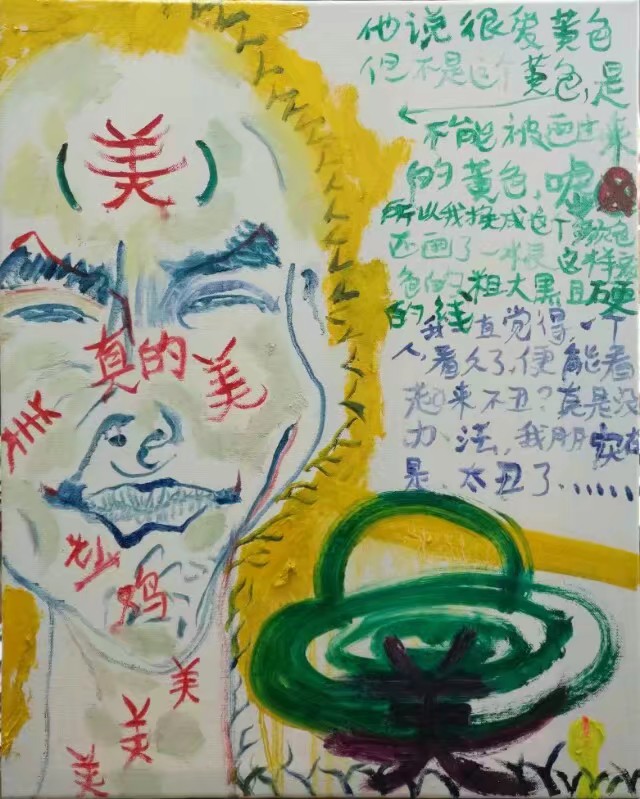 他说很爱黄色
但不是这个黄色,是
不能被画出来
的黄色,嘘
所以我换成这个颜色
还画了一根这样
色的粗大黑且硬
的线
我一直觉得,一个
人,看久了,便能看
起来不丑?竟是没
办法,我朋实在
是,太丑了......
(美)
真的美
美
炒
鸡
美
美
美
美